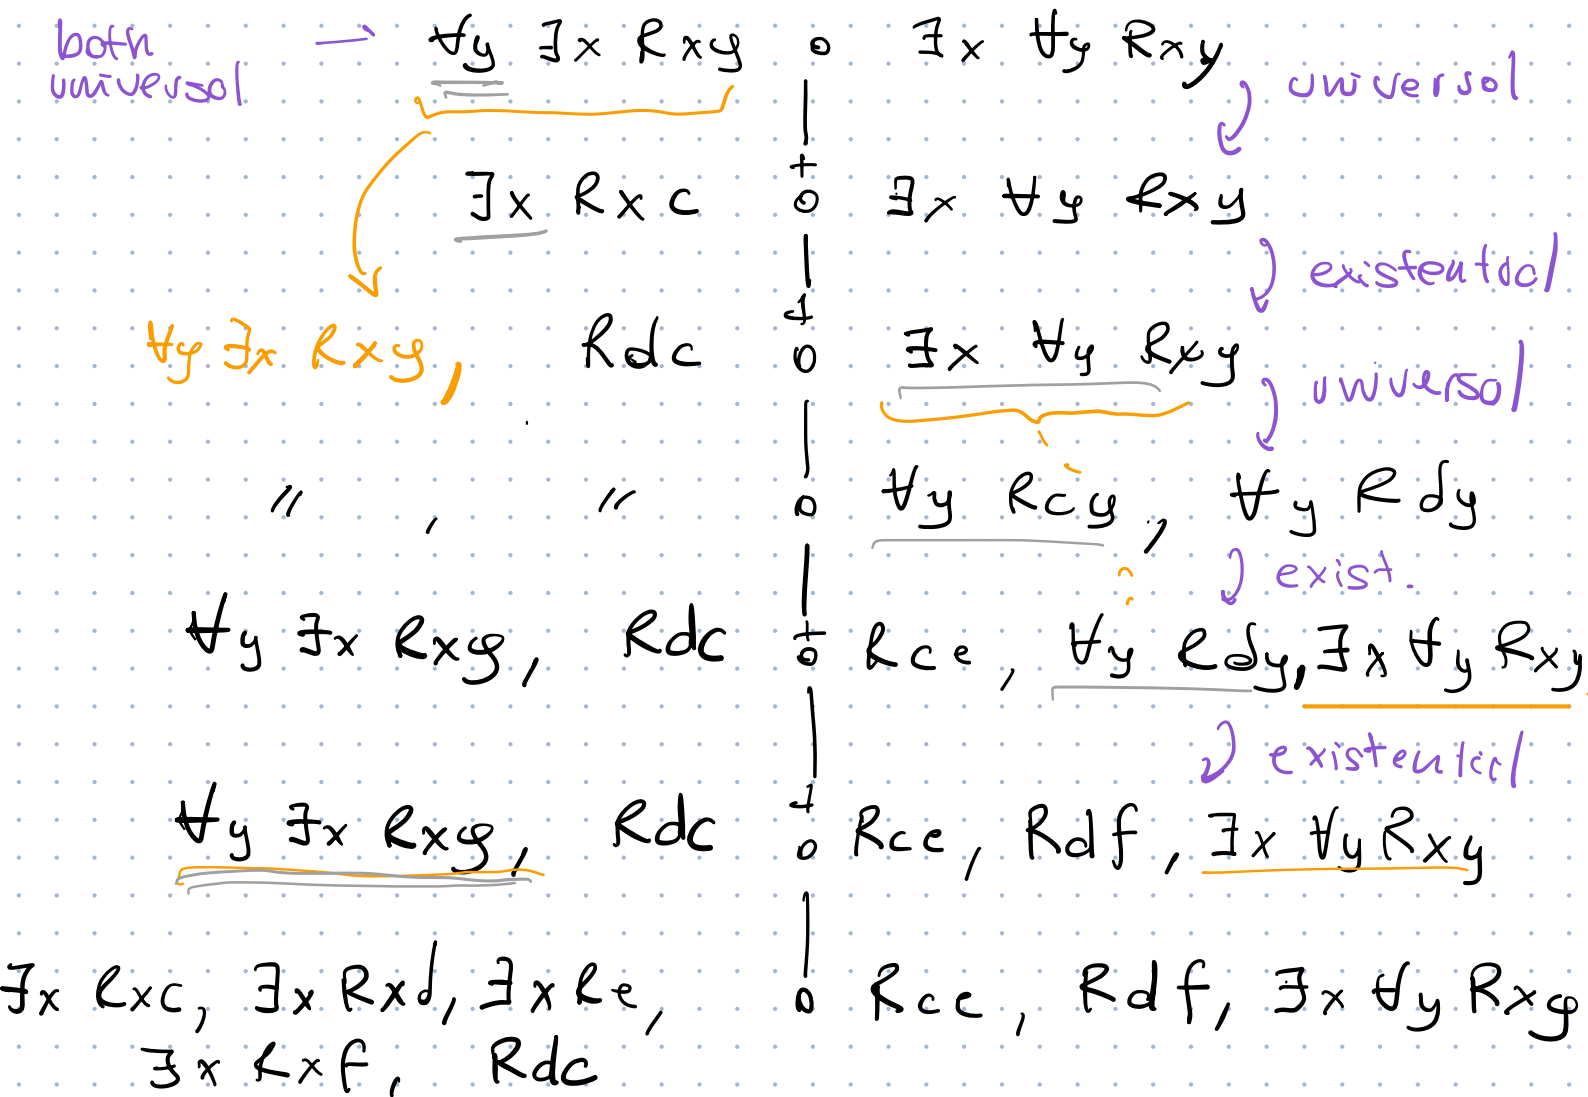 both universal → ∀y ∃x Rxy o ∃x ∀y Rxy
universal
+
∃x Rxc o ∃x ∀y Rxy
existential
+
∀y ∃x Rxy, Rdc o ∃x ∀y Rxy
universal
" , " o ∀y Rcy, ∀y Rdy
exist.
+
∀y ∃x Rxy, Rdc o Rce, ∀y Rdy, ∃x ∀y Rxy
existential
+
∀y ∃x Rxy, Rdc o Rce, Rdf, ∃x ∀y Rxy
∃x Rxc, ∃x Rxd, ∃x Re, o Rce, Rdf, ∃x ∀y Rxy
∃x Rxf, Rdc